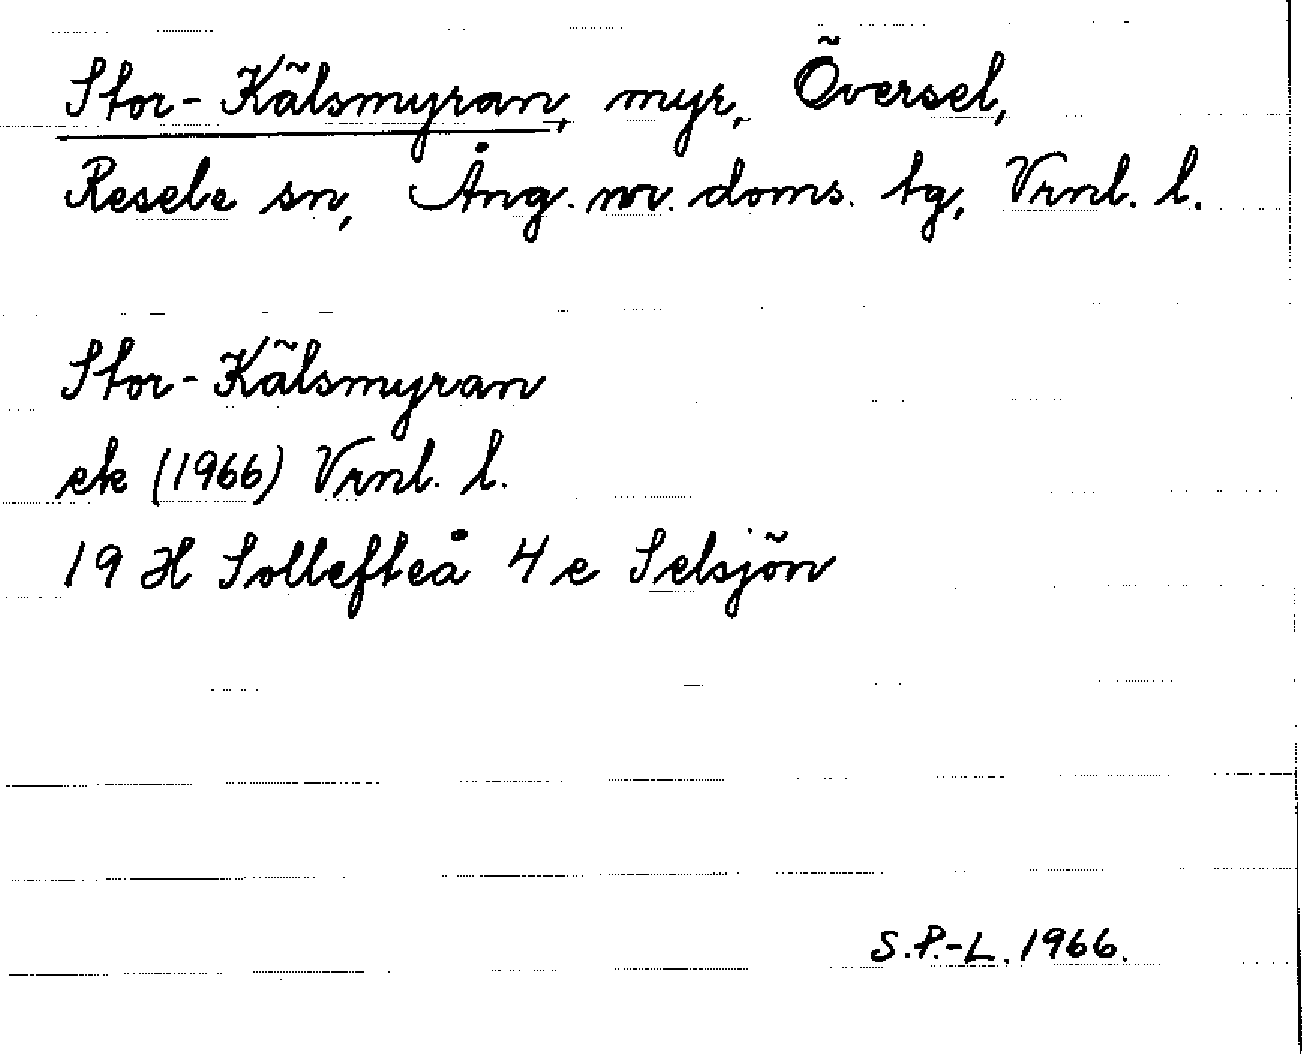 Stor-Kälsmyran, myr, Översel,
Resele sn, Ång. nv. doms. tg, Vrnl. l.
Stor-Kälsmyran
ek (1966) Vrnl. l.
19 H Sollefteå 4 e Selsjön
S.P.-L. 1966.